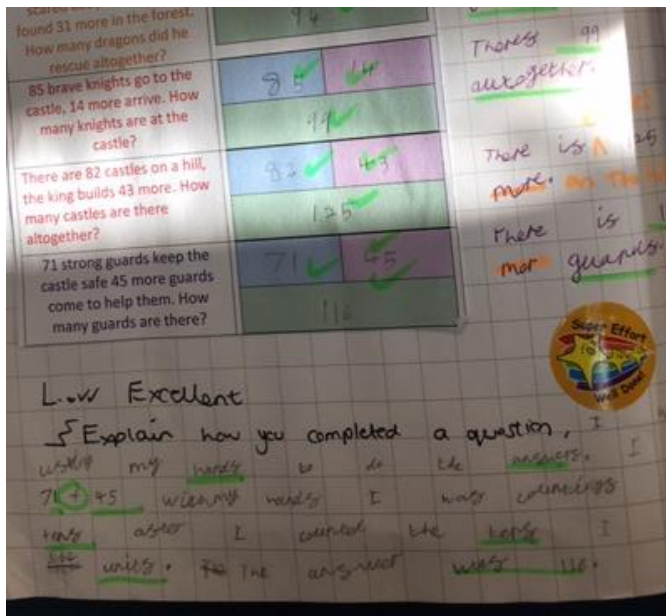 found 31 more in the forest.
How many dragons did he
rescue altogether?
94
85 brave knights go to the
castle, 14 more arrive. How
many knights are at the
castle?
85 14
99
Theres 99
autogether.
There are 82 castles on a hill,
the king builds 43 more. How
many castles are there
altogether?
82 43
125
There is 125
more.
71 strong guards keep the
castle safe 45 more guards
come to help them. How
many guards are there?
71 45
116
There is
mor guards.
Super Effort
Well Done!
Excellent
Explain how you completed a question. I
my hands to do the answers. I
71 + 45 hands I was
tens I counted the tens I
the units. The answer was 116.